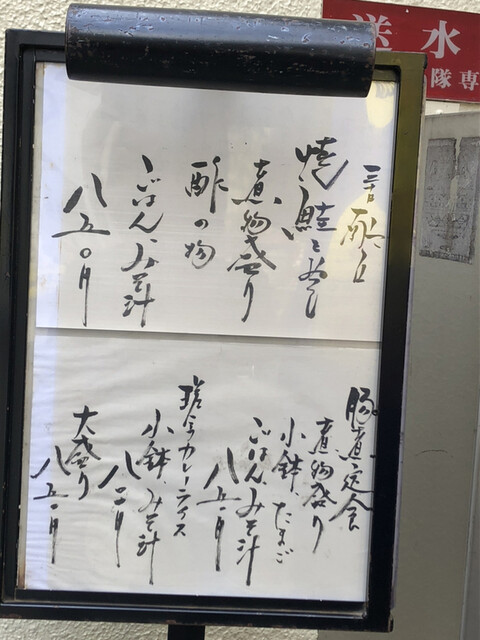 焼鮭と
煮物盛り
酢の物
ごはん、みそ汁
八五〇円
豚煮定食
煮物盛り
小鉢、たまご
ごはんみそ汁
八五〇円
カレーライス
小鉢、みそ汁
大盛り
八五〇円
送水
隊専